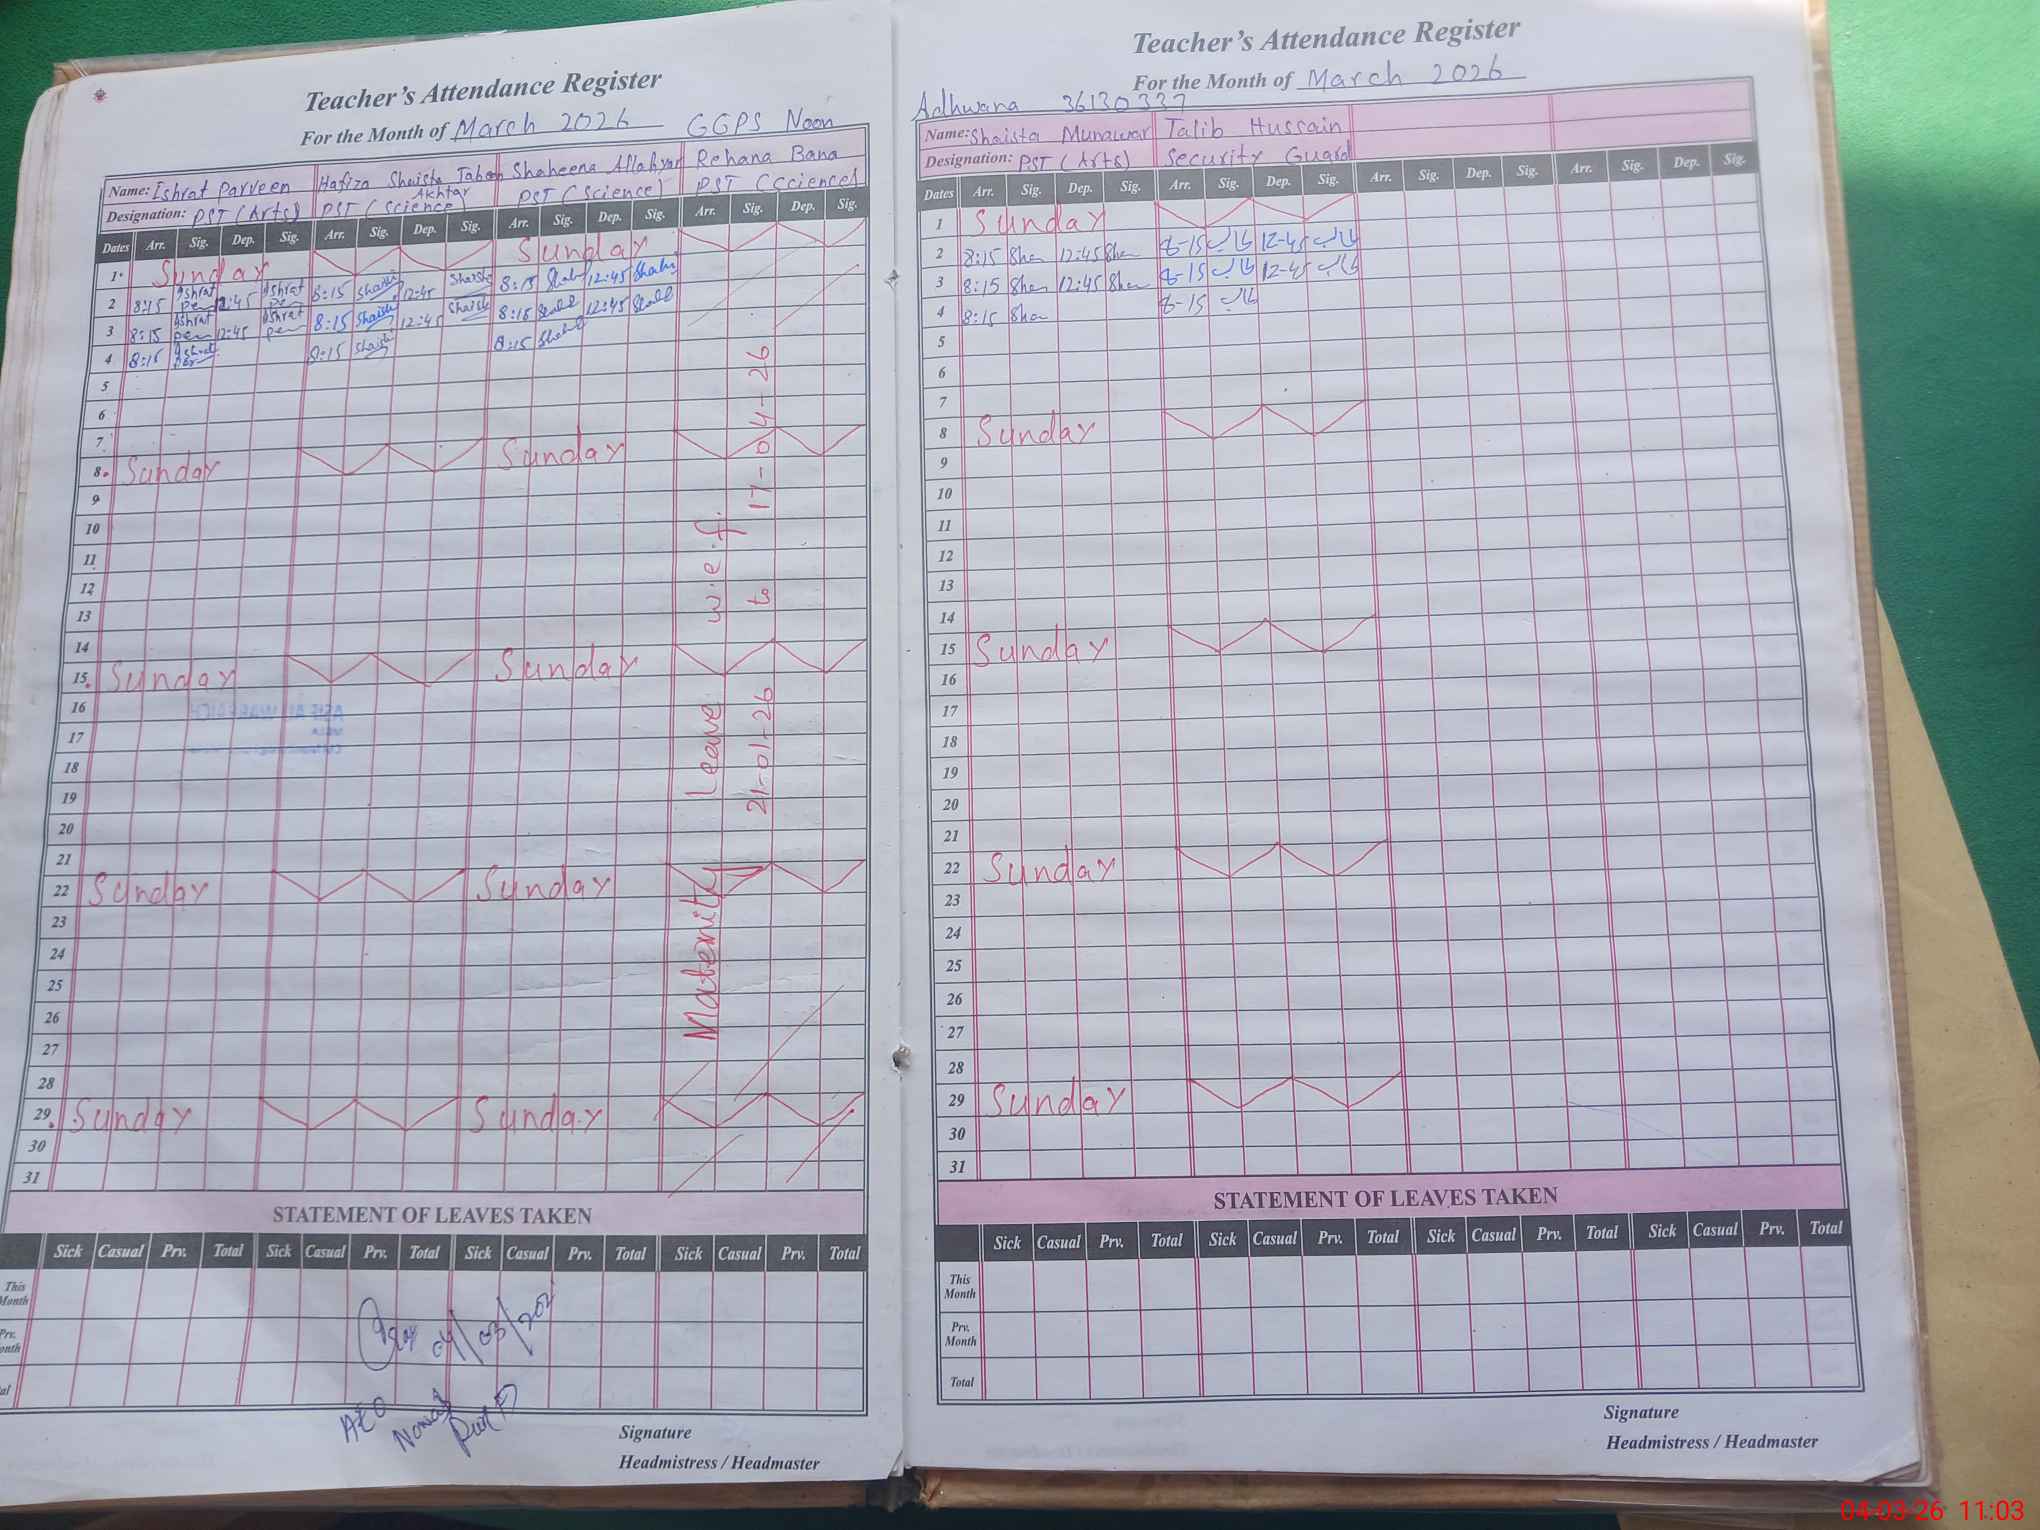 Teacher's Attendance Register
For the Month of March 2026 GGPS Noon
Name: Ishrat Parveen Hafiza Shaista Akhtar Shaheena Allahyar Rehana Bana
Designation: PST (Arts) PST (Science) PST (Science) PST (Science)
Dates Arr. Sig. Dep. Sig. Arr. Sig. Dep. Sig. Arr. Sig. Dep. Sig. Arr. Sig. Dep. Sig.
1 Sunday Sunday
2 8:15 Ishrat 12:45 Ishrat 8:15 Shaista 12:45 Shaista 8:15 12:45
3 8:15 Ishrat 12:45 Ishrat 8:15 Shaista 12:45 Shaista 8:15 12:45
4 8:15 Ishrat 8:15 Shaista 8:15
5
6
7
8 Sunday Sunday
9
10
11
12
13
14
15 Sunday Sunday
16
17
18
19
20
21
22 Sunday Sunday
23
24
25
26
27
28
29 Sunday Sunday
30
31
Maternity Leave w.e.f.
21-01-26 to 17-04-26
STATEMENT OF LEAVES TAKEN
Sick Casual Prv. Total Sick Casual Prv. Total Sick Casual Prv. Total Sick Casual Prv. Total
This Month
Prv.
04/03/202
AEO
Signature
Headmistress / Headmaster
Teacher's Attendance Register
For the Month of March 2026
Adhwana 36130337
Name: Shaista Munawar Talib Hussain
Designation: PST (Arts) Security Guard
Dates Arr. Sig. Dep. Sig. Arr. Sig. Dep. Sig. Arr. Sig. Dep. Sig. Arr. Sig. Dep. Sig.
1 Sunday
2 8:15 Sha 12:45 Sha 8-15 طالب 12-45 طالب
3 8:15 Sha 12:45 Sha 8-15 طالب 12-45 طالب
4 8:15 Sha 8-15 طالب
5
6
7
8 Sunday
9
10
11
12
13
14
15 Sunday
16
17
18
19
20
21
22 Sunday
23
24
25
26
27
28
29 Sunday
30
31
STATEMENT OF LEAVES TAKEN
Sick Casual Prv. Total Sick Casual Prv. Total Sick Casual Prv. Total Sick Casual Prv. Total
This Month
Prv. Month
Total
Signature
Headmistress / Headmaster
04-03-26 11:03